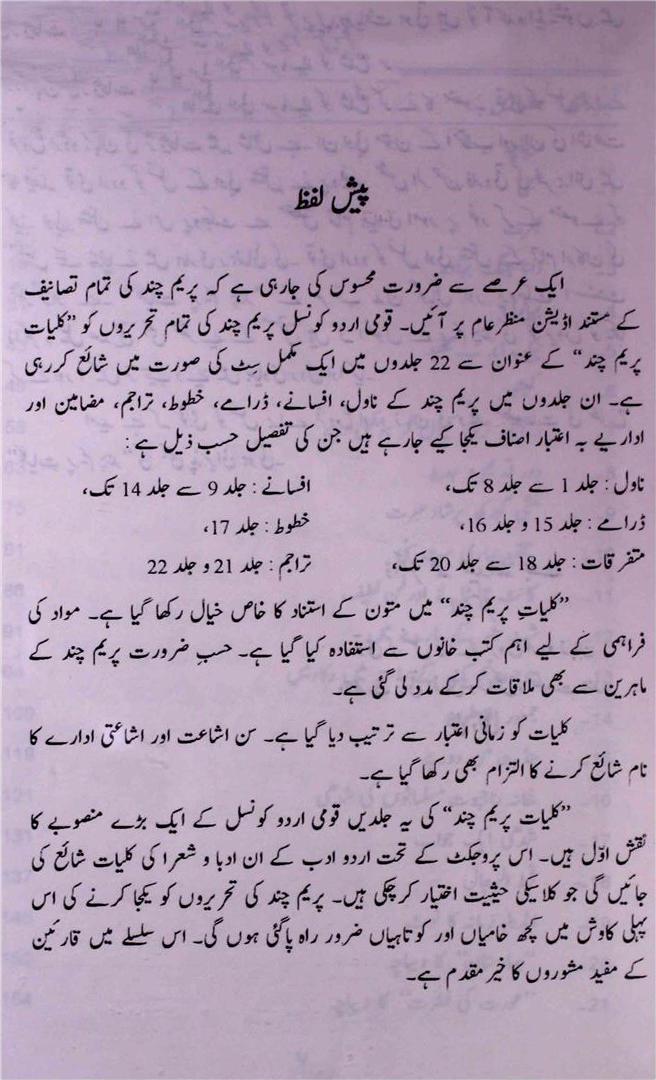 پیش لفظ
ایک عرصے سے ضرورت محسوس کی جارہی ہے کہ پریم چند کی تمام تصانیف
کے مستند اڈیشن منظر عام پر آئیں۔ قومی اردو کونسل پریم چند کی تمام تحریروں کو ”کلیات
پریم چند“ کے عنوان سے 22 جلدوں میں ایک مکمل سِٹ کی صورت میں شائع کررہی
ہے۔ ان جلدوں میں پریم چند کے ناول، افسانے، ڈرامے، خطوط، تراجم، مضامین اور
اداریے بہ اعتبار اصناف یکجا کیے جارہے ہیں جن کی تفصیل حسب ذیل ہے :
ناول : جلد 1 سے جلد 8 تک، افسانے : جلد 9 سے جلد 14 تک،
ڈرامے : جلد 15 و جلد 16، خطوط : جلد 17،
متفرقات : جلد 18 سے جلد 20 تک، تراجم : جلد 21 و جلد 22
”کلیاتِ پریم چند“ میں متون کے استناد کا خاص خیال رکھا گیا ہے۔ مواد کی
فراہمی کے لیے اہم کتب خانوں سے استفادہ کیا گیا ہے۔ حسبِ ضرورت پریم چند کے
ماہرین سے بھی ملاقات کرکے مدد لی گئی ہے۔
کلیات کو زمانی اعتبار سے ترتیب دیا گیا ہے۔ سن اشاعت اور اشاعتی ادارے کا
نام شائع کرنے کا التزام بھی رکھا گیا ہے۔
”کلیات پریم چند“ کی یہ جلدیں قومی اردو کونسل کے ایک بڑے منصوبے کا
نقش اوّل ہیں۔ اس پروجکٹ کے تحت اردو ادب کے ان ادبا و شعرا کی کلیات شائع کی
جائیں گی جو کلاسیکی حیثیت اختیار کرچکی ہیں۔ پریم چند کی تحریروں کو یکجا کرنے کی اس
پہلی کاوش میں کچھ خامیاں اور کوتاہیاں ضرور راہ پاگئی ہوں گی۔ اس سلسلے میں قارئین
کے مفید مشوروں کا خیر مقدم ہے۔